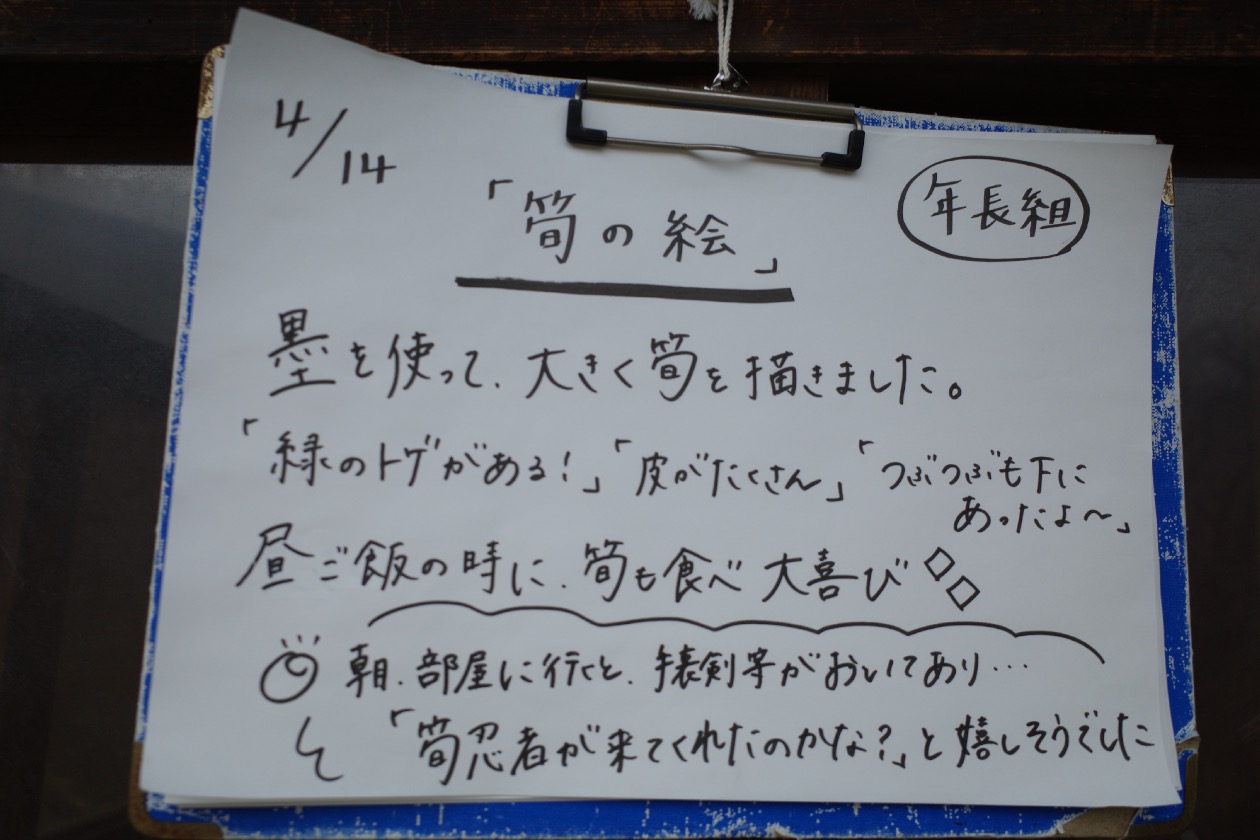 4/14
年長組
「筍の絵」
墨を使って、大きく筍を描きました。
「緑のトゲがある!」「皮がたくさん」「つぶつぶも下に
あったよ〜」
昼ご飯の時に、筍も食べ大喜び
朝、部屋に行くと、手裏剣等がおいてあり…
「筍忍者が来てくれたのかな?」と嬉しそうでした